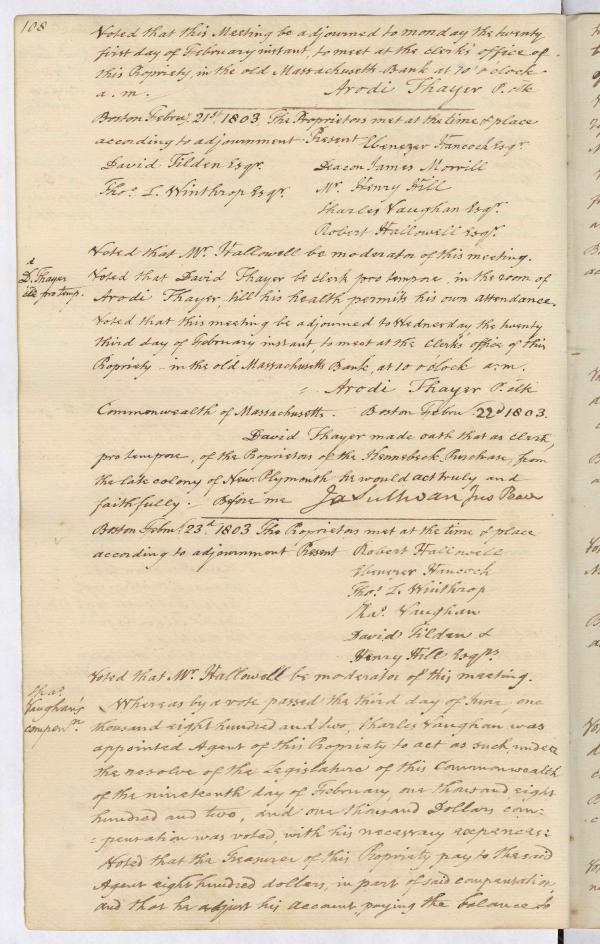 108
Voted that this Meeting be adjourned to monday the twenty
first day of February instant, to meet at the clerk's office of
this Propriety, in the old Massachusetts Bank at 10 o'clock
a. m. Arodi Thayer P. clk
Boston Febru. 21st 1803. The Proprietors met at the time & place
according to adjournment Present Ebenezer Hancock Esqr.
David Tilden Esqr. Deacon James Morrill
Thos. L. Winthrop Esqr. Mr. Henry Hill
Charles Vaughan Esqr.
Robert Hallowell Esqr.
Voted that Mr. Hallowell be moderator of this meeting.
D. Thayer
clk pro temp.
Voted that David Thayer be clerk pro tempore, in the room of
Arodi Thayer, till his health permits his own attendance.
Voted that this meeting be adjourned to Wednesday the twenty
third day of February instant, to meet at the Clerk's office of this
Propriety - in the old Massachusetts Bank, at 10 o'clock a.m.
Arodi Thayer P. clk
Commonwealth of Massachusetts. Boston Febru. 22d 1803.
David Thayer made oath that as clerk,
pro tempore, of the Proprietors of the Kennebeck Purchase, from
the late colony of New Plymouth he would act truly and
faithfully. Before me Ja Sullivan Jus Peace
Boston Febru. 23d. 1803 The Proprietors met at the time & place
according to adjournment Present Robert Hallowell
Ebenezer Hancock
Thos. L. Winthrop
Chas. Vaughan
David Tilden &
Henry Hill Esqrs.
Voted that Mr. Hallowell be moderator of this meeting.
Chas.
Vaughan's
compenn.
Whereas by a vote passed the third day of June, one
thousand eight hundred and two, Charles Vaughan was
appointed Agent of this Propriety to act as such, under
the resolve of the Legislature of this Commonwealth
of the nineteenth day of February, one thousand eight
hundred and two, and one thousand Dollars com=
=pensation was voted, with his necessary expences:
Voted that the Treasurer of this Propriety pay to the said
Agent eight hundred dollars, in part of said compensation,
and that he adjust his account, paying the balance to